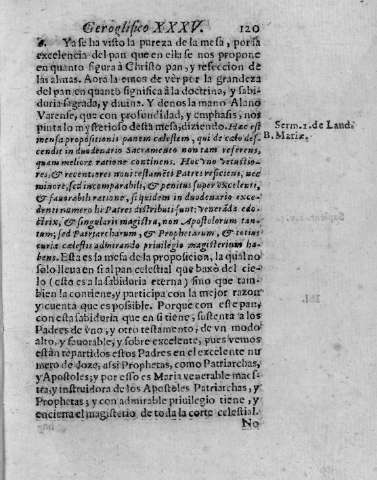 Geroglifico XXXV. 120
Ya se ha visto la pureza de la mesa, por la
excelencia del pan que en ella se nos propone
en quanto figura à Christo pan, y refeccion de
las almas. Aora la emos de ver por la grandeza
del pan en quanto significa à la doctrina, y sabi-
duria sagrada, y diuina. Y denos la mano Alano
Varense, que con profundidad, y emphasis, nos
pinta lo mysterioso desta mesa, diziendo. Hac est
mensa propositionis panem cælestem, qui de cælo des-
cendit in duodenario Sacramento non tam referens,
quam meliore ratione continens. Hac vno vetustio-
res, & recentiores noui testamēti Patres reficiens, nec
minore, sed incomparabili, & penitus super excelente,
& fauorabili ratione, si quidem in duodenario exce-
denti numero hi Patres distributi sunt: venerāda edo-
ctrix, & singularis magistra, non Apostolorum tan-
tum; sed Patriarcharum, & Prophetarum, & totius
curia celestis admirando priuilegio magisterium ha-
bens. Esta es la mesa de la proposicion, la qual no
solo lleua en si al pan celestial que baxò del cie-
lo (esto es a la sabiduria eterna) sino que tam-
bien la contiene, y participa con la mejor razon
y cuenta que es possible. Porque con este pan, y
con esta sabiduria que en si tiene, sustenta a los
Padres de vno, y otro testamento; de vn modo
alto, y fauorable, y sobre excelente, pues vemos
están repartidos estos Padres en el excelente nu
mero de doze, assi Prophetas, como Patriarchas,
y Apostoles; y por esso es Maria venerable maes-
tra, y instruidora de los Apostoles Patriarchas, y
Prophetas; y con admirable priuilegio tiene, y
encierra el magisterio de toda la corte celestial.
No
Serm. 1. de Laud.
B. Mariæ.